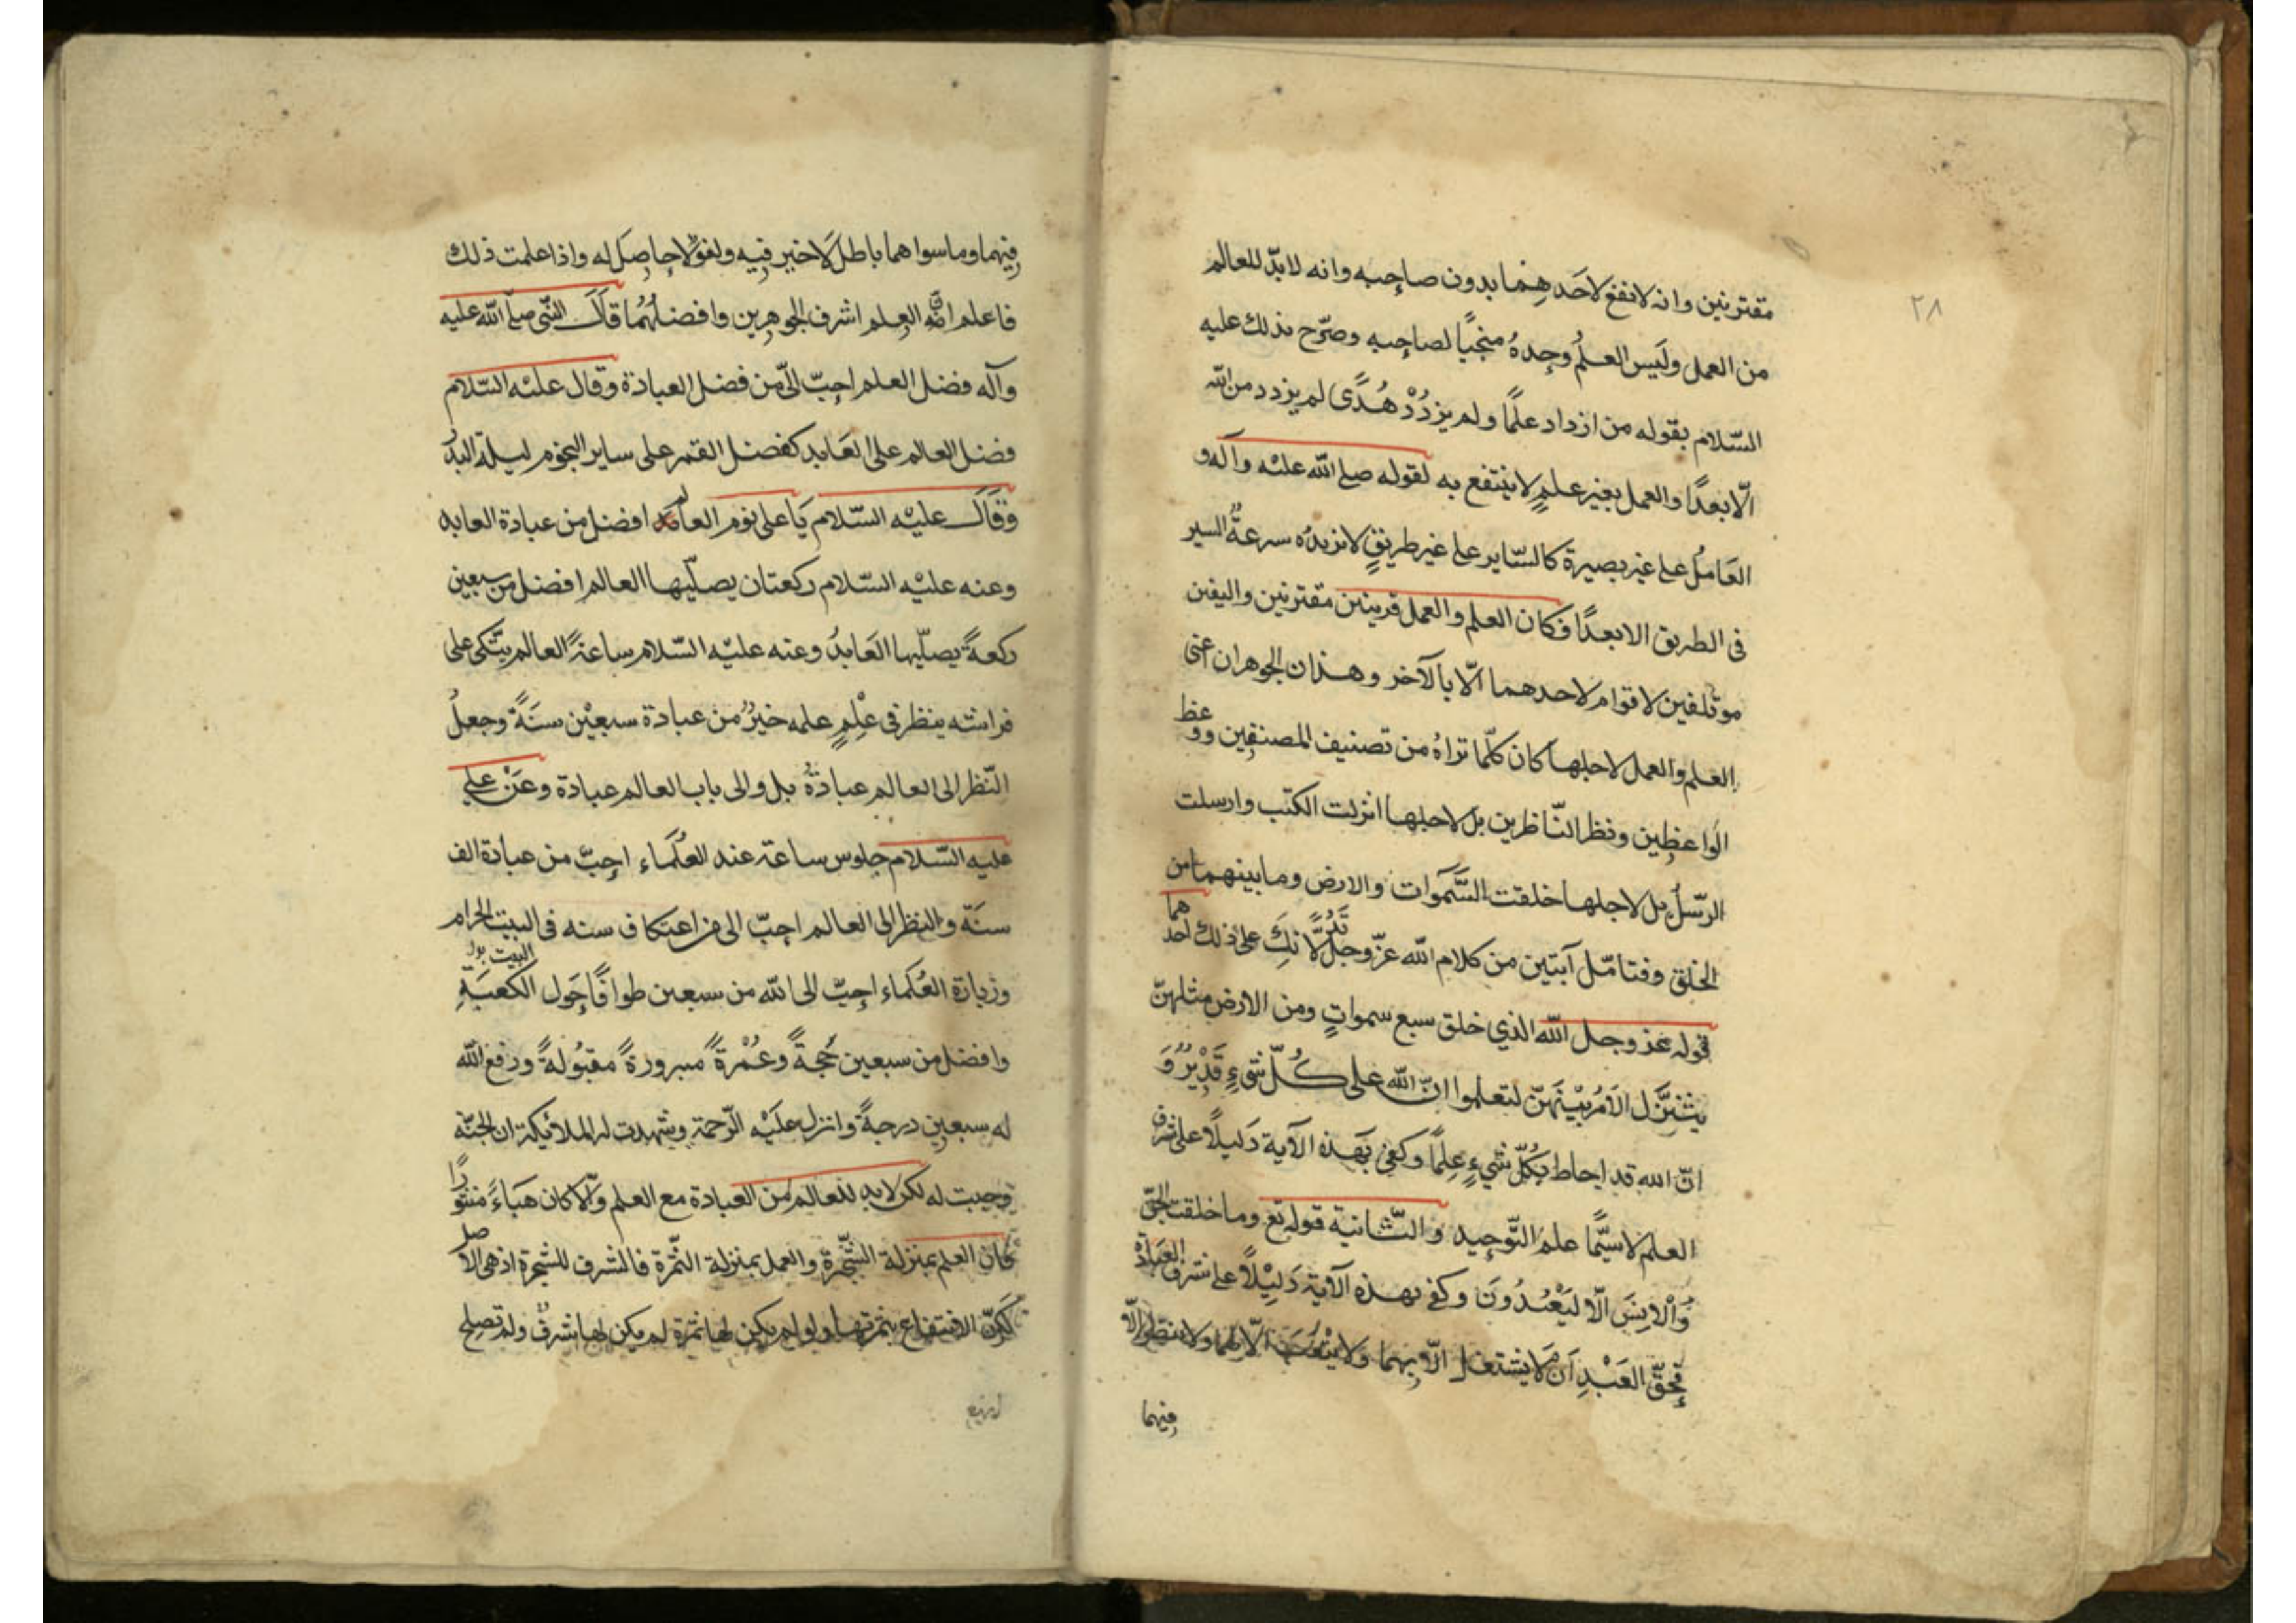 ٢٨
مقترنين وانه لانفع لاحدهما بدون صاحبه وانه لابدّ للعالم
من العمل وليس العلمُ وحدهُ منجيًا لصاحبه وصرّح بذلك عليه
السّلام بقوله من ازداد علمًا ولم يزددْ هُدًى لم يزدد من الله
الّا بعدًا والعمل بغير علمٍ لاينتفع به لقوله صلى الله عليه وآله و
العَامل على غير بصيرة كالسّاير على غير طريقٍ لاتزيدُه سرعةُ السير
فى الطريق الا بعدًا فكان العلم والعمل قرينين مقترنين واليفين
موتلفين لاقوام لاحدهما الّا بالآخر وهذان الجوهران اعنى
العلم والعمل لاجلهما كان كلّما تراهُ من تصنيف المصنفين ووعظ
الواعظين ونظر النّاظرين بل لاجلهما انزلت الكتب وارسلت
الرّسلُ بل لاجلهما خلقت السَّموات والارض وما بينهما من
الخلق وفتامّل آيتين من كلام الله عزّ وجلّ تدُلّانك على ذلك احدهما
قوله عز وجل الله الذي خلق سبع سمواتٍ ومن الارض مثلهنّ
يتنزّل الامر بيْنَهنّ لتعلموا انّ الله على كُلّ شىءٍ قَدِيْرٌ وَ
انّ الله قد احاط بكُلّ شيءٍ عِلمًا وكفى بهَذه الآية دَليلًا على شرف
العلم لاسيَّما علم التّوحيد والثّانية قوله تع وما خلقت الجنّ
وَالْانِسَ الّا ليَعْبُدُونَ وكفى بهذه الآية دَلِيْلًا على شرف العبَادة
فحقّ العَبْدِ اَن لايشتغل الّا بهما ولايتْعَبَ الّا لهما ولاينظر الّا
فيهما
فيهما وما سواهما باطل لَاخير فيه ولغوٌ لاحاصل له واذا علمت ذلك
فاعلم انّ العلم اشرف الجوهرين وافضلهُما قَالَ النّبى صلى الله عليه
وآله فضل العلم احبّ الىّ من فضل العبادة وقال عليه السّلام
فضل العالم على العَابد كفضل القمر على ساير النجوم ليلة البدر
وقَالَ عليْه السّلام يَا على نوم العالم افضل من عبادة العابد
وعنه عليْه السّلام ركعتان يصلّيها العالم افضل من سبعين
ركعةً يصلّيها العَابدُ وعنه عليْه السّلام ساعةً العالم يتّكى على
فراشه ينظر فى عْلِمٍ علمه خيرٌ من عبادة سبعيْن سنَةً وجعلُ
النّظر الى العالم عبادةٌ بل والى باب العالم عبادة وعَنْ علي
عليه السّلام جلوس ساعة عند العُلَماء احبّ من عبادة الف
سنَة والنظر الى العالم احبّ الى من اعتكاف سنه فى البيت الحرام
وزيارة العُلماء احبّ الى الله من سبعين طوافًا حَول الكعبَةِ
البيت
وافضل من سبعين حَجةً وعُمْرةً مبرورةً مقبُولةً ورفع الله
له سبعين درجةً وانزل عليْه الرّحمة وشهدت له الملائكة ان الجنّة
وجبت له لكن لابد للعالم من العبادة مع العلم والّا كان هَبَاءً منثورًا
كَان العلم بمنزلة الشّجرة والعمل بمنزلة الثّمرة فالشرف للشجرة اذ هى الاصل
لكنّ الانتفاع بثمرتها ولو لم يكن لها ثمرة لم يكن لها شرفٌ ولم تصلح